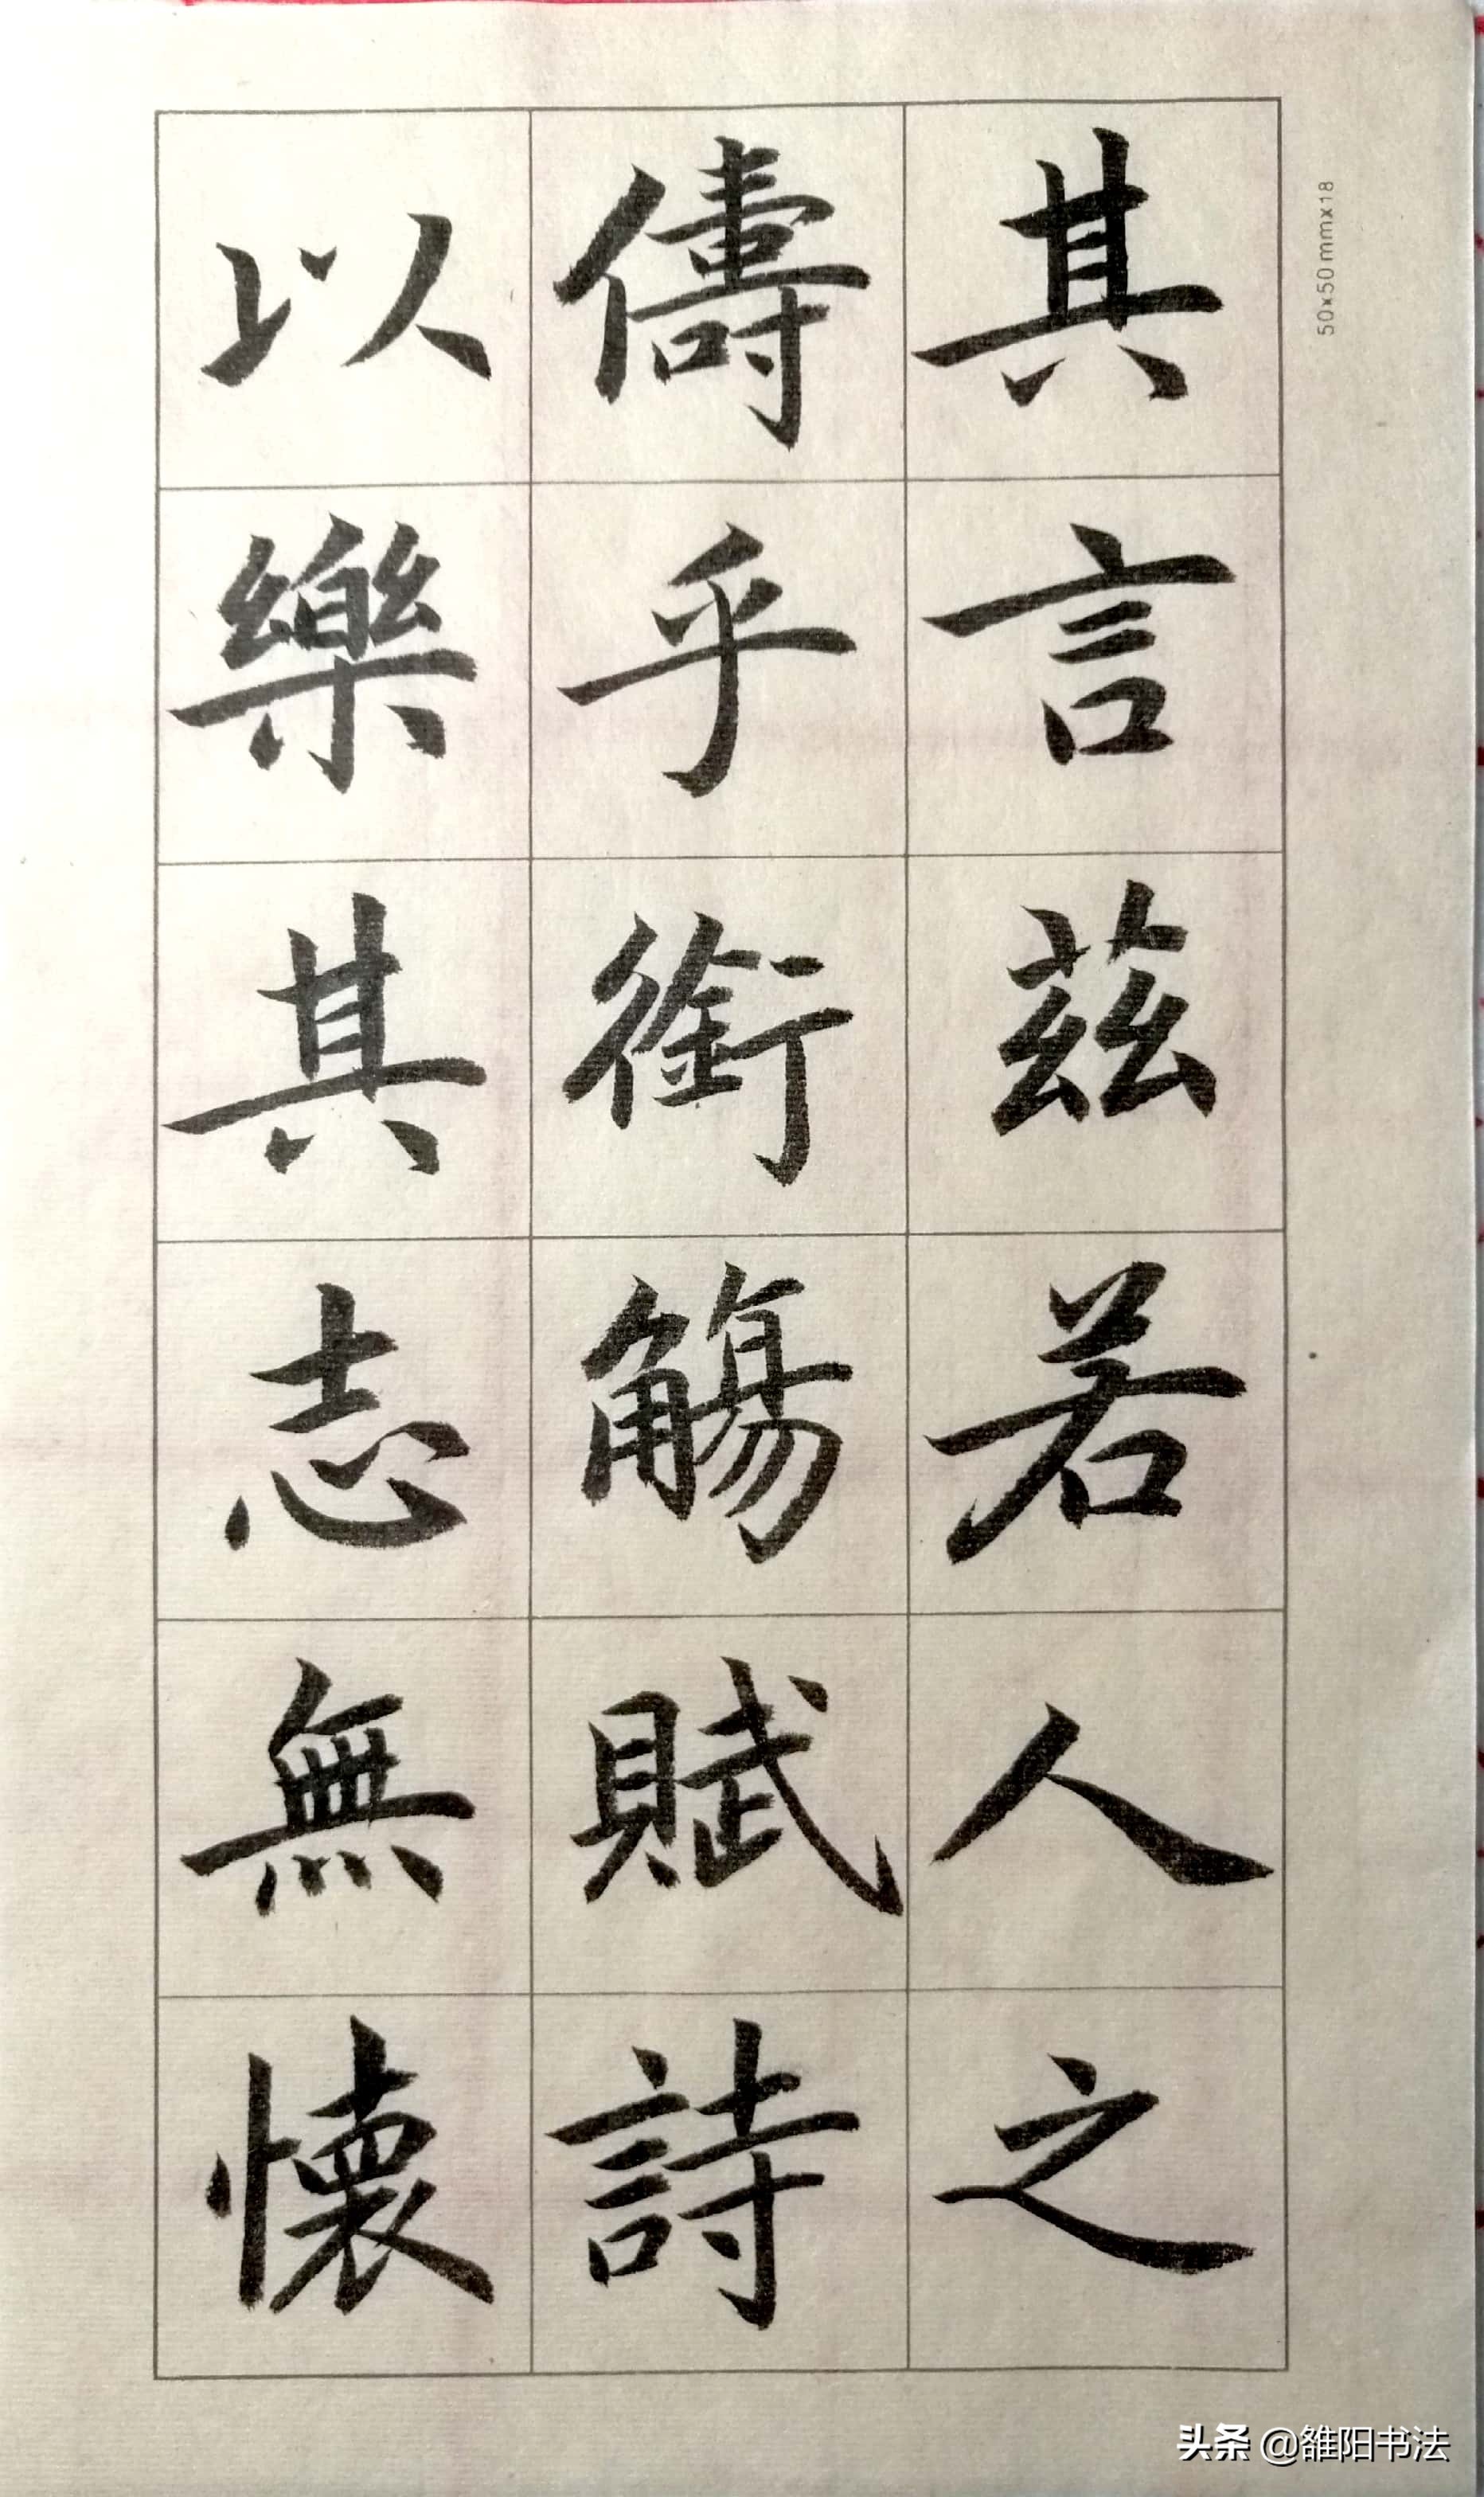 其言茲若人之
儔乎銜觴賦詩
以樂其志無懷
50x50mmx18
头条 @雒阳书法